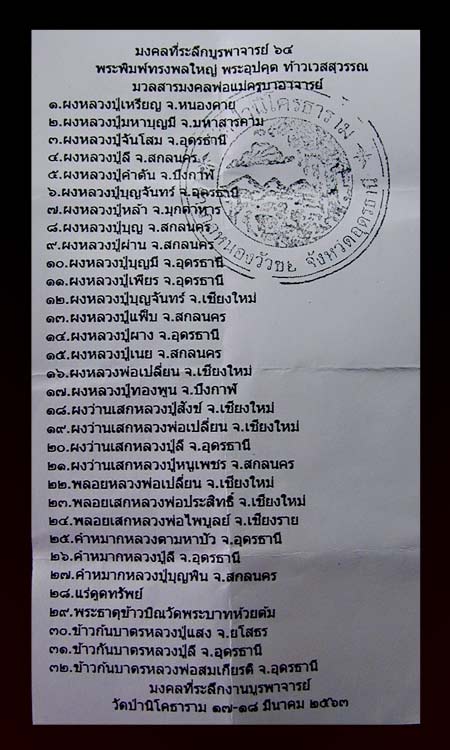 มงคลที่ระลึกบูรพาจารย์ ๖๔
พระพิมพ์ทรงพลใหญ่ พระอุปคุต ท้าวเวสสุวรรณ
มวลสารมงคลพ่อแม่ครูบาอาจารย์
๑.ผงหลวงปู่เหรียญ จ.หนองคาย
๒.ผงหลวงปู่มหาบุญมี จ.มหาสารคาม
๓.ผงหลวงปู่จันโสม จ.อุดรธานี
๔.ผงหลวงปู่ลี จ.สกลนคร
๕.ผงหลวงปู่คำตัน จ.บึงกาฬ
๖.ผงหลวงปู่บุญจันทร์ จ.อุดรธานี
๗.ผงหลวงปู่หล้า จ.มุกดาหาร
๘.ผงหลวงปู่บุญ จ.สกลนคร
๙.ผงหลวงปู่ผ่าน จ.สกลนคร
๑๐.ผงหลวงปู่บุญมี จ.อุดรธานี
๑๑.ผงหลวงปู่เพียร จ.อุดรธานี
๑๒.ผงหลวงปู่บุญจันทร์ จ.เชียงใหม่
๑๓.ผงหลวงปู่แฟ๊บ จ.สกลนคร
๑๔.ผงหลวงปู่ผาง จ.อุดรธานี
๑๕.ผงหลวงปู่เนย จ.สกลนคร
๑๖.ผงหลวงพ่อเปลี่ยน จ.เชียงใหม่
๑๗.ผงหลวงปู่ทองพูน จ.บึงกาฬ
๑๘.ผงว่านเสกหลวงปู่สังข์ จ.เชียงใหม่
๑๙.ผงว่านเสกหลวงพ่อเปลี่ยน จ.เชียงใหม่
๒๐.ผงว่านเสกหลวงปู่ลี จ.อุดรธานี
๒๑.ผงว่านเสกหลวงปู่หนูเพชร จ.สกลนคร
๒๒.พลอยหลวงพ่อเปลี่ยน จ.เชียงใหม่
๒๓.พลอยเสกหลวงพ่อประสิทธิ์ จ.เชียงใหม่
๒๔.พลอยเสกหลวงพ่อไพบูลย์ จ.เชียงราย
๒๕.คำหมากหลวงตามหาบัว จ.อุดรธานี
๒๖.คำหมากหลวงปู่ลี จ.อุดรธานี
๒๗.คำหมากหลวงปู่บุญพิน จ.สกลนคร
๒๘.แร่ดูดทรัพย์
๒๙.พระธาตุข้าวบิณวัดพระบาทห้วยต้ม
๓๐.ข้าวก้นบาตรหลวงปู่แสง จ.ยโสธร
๓๑.ข้าวก้นบาตรหลวงปู่ลี จ.อุดรธานี
๓๒.ข้าวก้นบาตรหลวงพ่อสมเกียรติ จ.อุดรธานี
มงคลที่ระลึกงานบูรพาจารย์
วัดป่านิโคธาราม ๑๗-๑๘ มีนาคม ๒๕๖๓
นิโครธาราม
หนองวัวซอ จังหวัดอุดรธานี